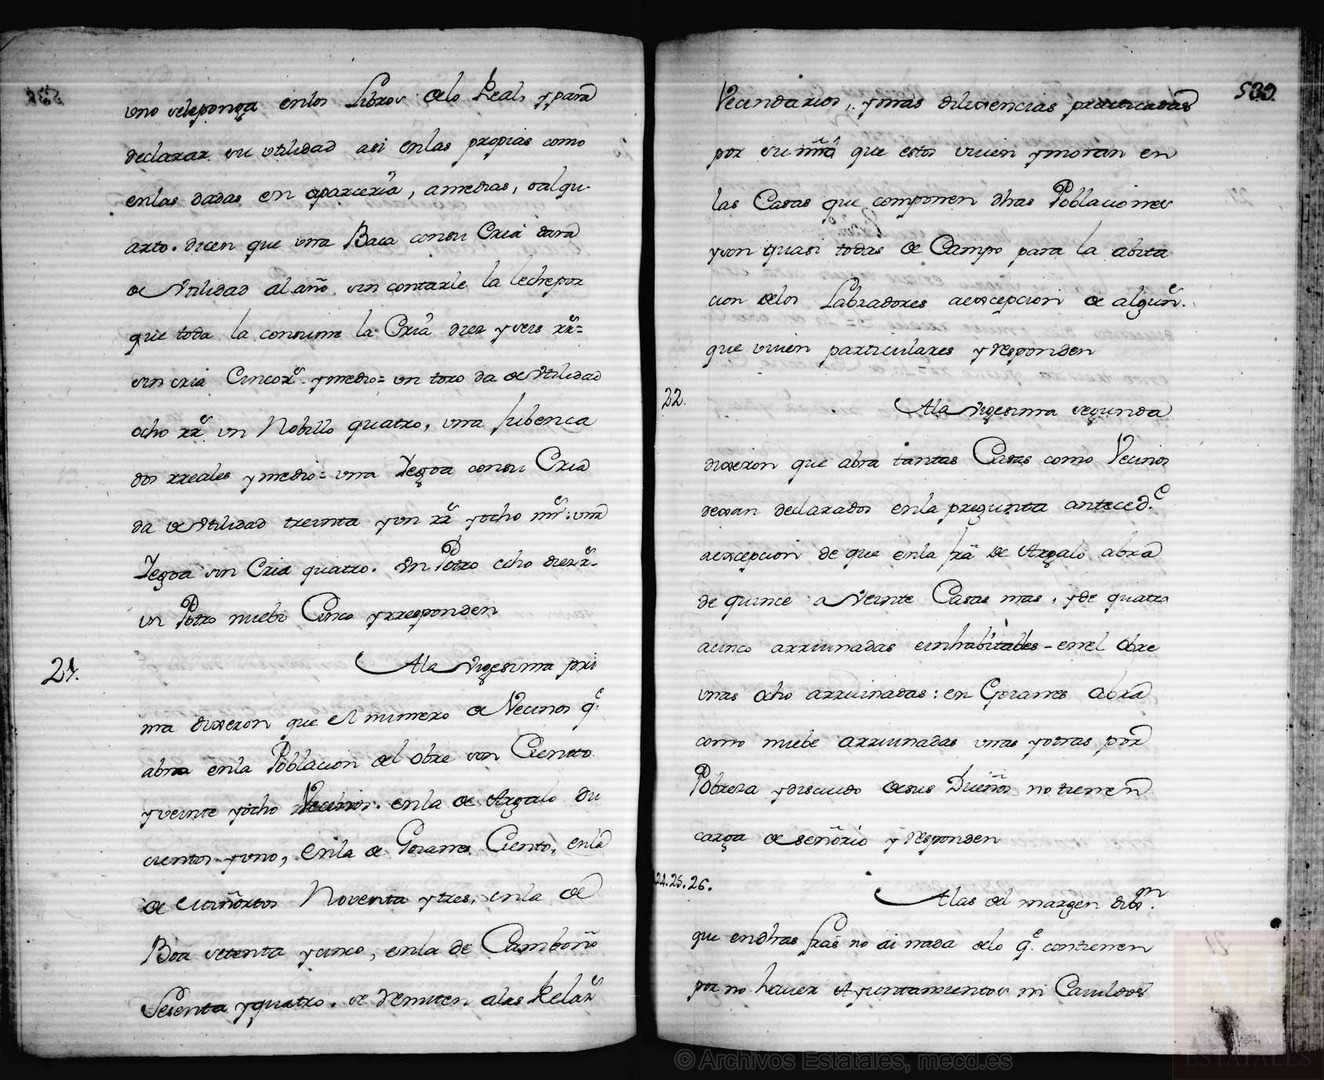 uno seleponga enlos Libros delo Real, y para
declarar su utilidad asi enlas propias como
enlas dadas en aparceria, amedias, oalqu-
arto. dicen que una Baca consu Cria dara
de Utilidad al año sin contarle la lechepor
que toda la consume la Cria diez y seis rs=
sin cria Cincors. ymedio= un toro da de Utilidad
ocho rs un Nobillo quatro, una Jubenca
dos rreales ymedio= una Yegoa consu Cria
da de Utilidad treinta yun rs yocho ms: una
Yegoa sin Cria quatro. Un Potro ocho
un Potro nuebo Cinco yrresponden
21.
Ala Vigesima pri
ma dixeron que el numero de Vecinos q.e
abra enla Poblacion del Obre son Ciento
yveinte yocho Vecinos. enla de Argalo du
cientos yuno, enla de Goians Ciento, enla
de Noventa ytres, enla de
Boa setenta ycinco, enla de Camboño
Sesenta yquatro. se remiten alas Relas
533.
Vecindarios, ymas dilixencias practicadas
por su mrd que estos viven ymoran en
las Casas que componen dhas Poblaciones
yson quasi todas de Campo para la abita
cion delos Labradores aexcepcion de algun.s
que viven particulares yresponden
22.
Ala Vigesima segunda
dixeron que abra tantas Casas como Vecinos
dexan declarados enla pregunta anteced.e
aexcepcion de que enla fra de Argalo abra
de quince a Veinte Casas mas, yde quatro
acinco arruinadas einhabitables - enel Obre
unas ocho arruinadas: en Goians abra
como nuebe arruinadas unas yotras por
Pobreza ydescuido desus Dueños notienen
carga de señorio yresponden
24.25.26.
Alas del margen dix.on
que endhas fras no ai nada delo q.e contienen
por no haver Ayuntamientos ni Cavildos
© Archivos Estatales, mecd.es